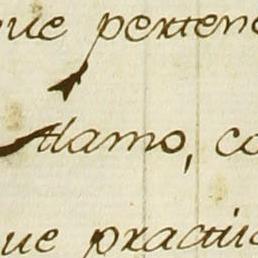 que pertene
Alamo, co
que practic